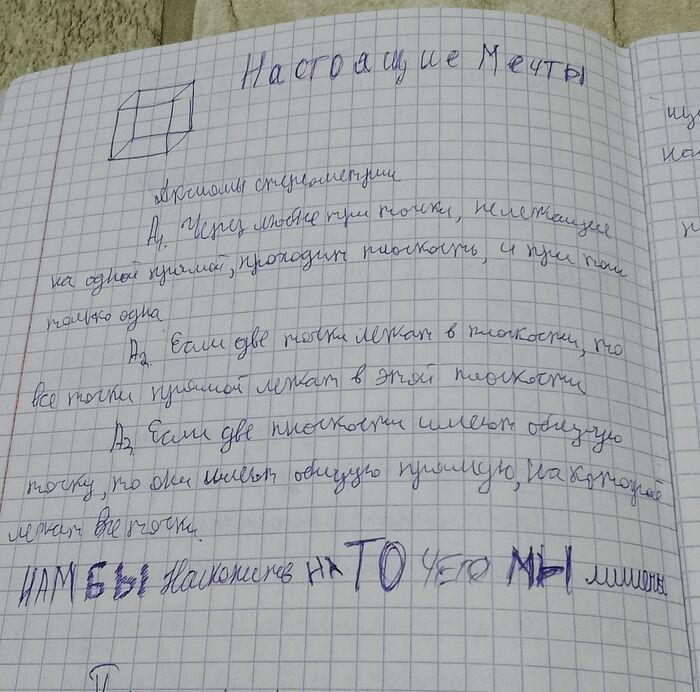 Настоящие Мечты
Аксиомы стереометрии
А1. Через любые три точки, нележащие
на одной прямой, проходит плоскость, и при том
только одна
А2. Если две точки лежат в плоскости, то
все точки прямой лежат в этой плоскости
А3 Если две плоскости имеют общую
точку, то они имеют общую прямую, на которой
лежат все точки.
НАМ БЫ Накопить НА ТО ЧЕГО МЫ лишены